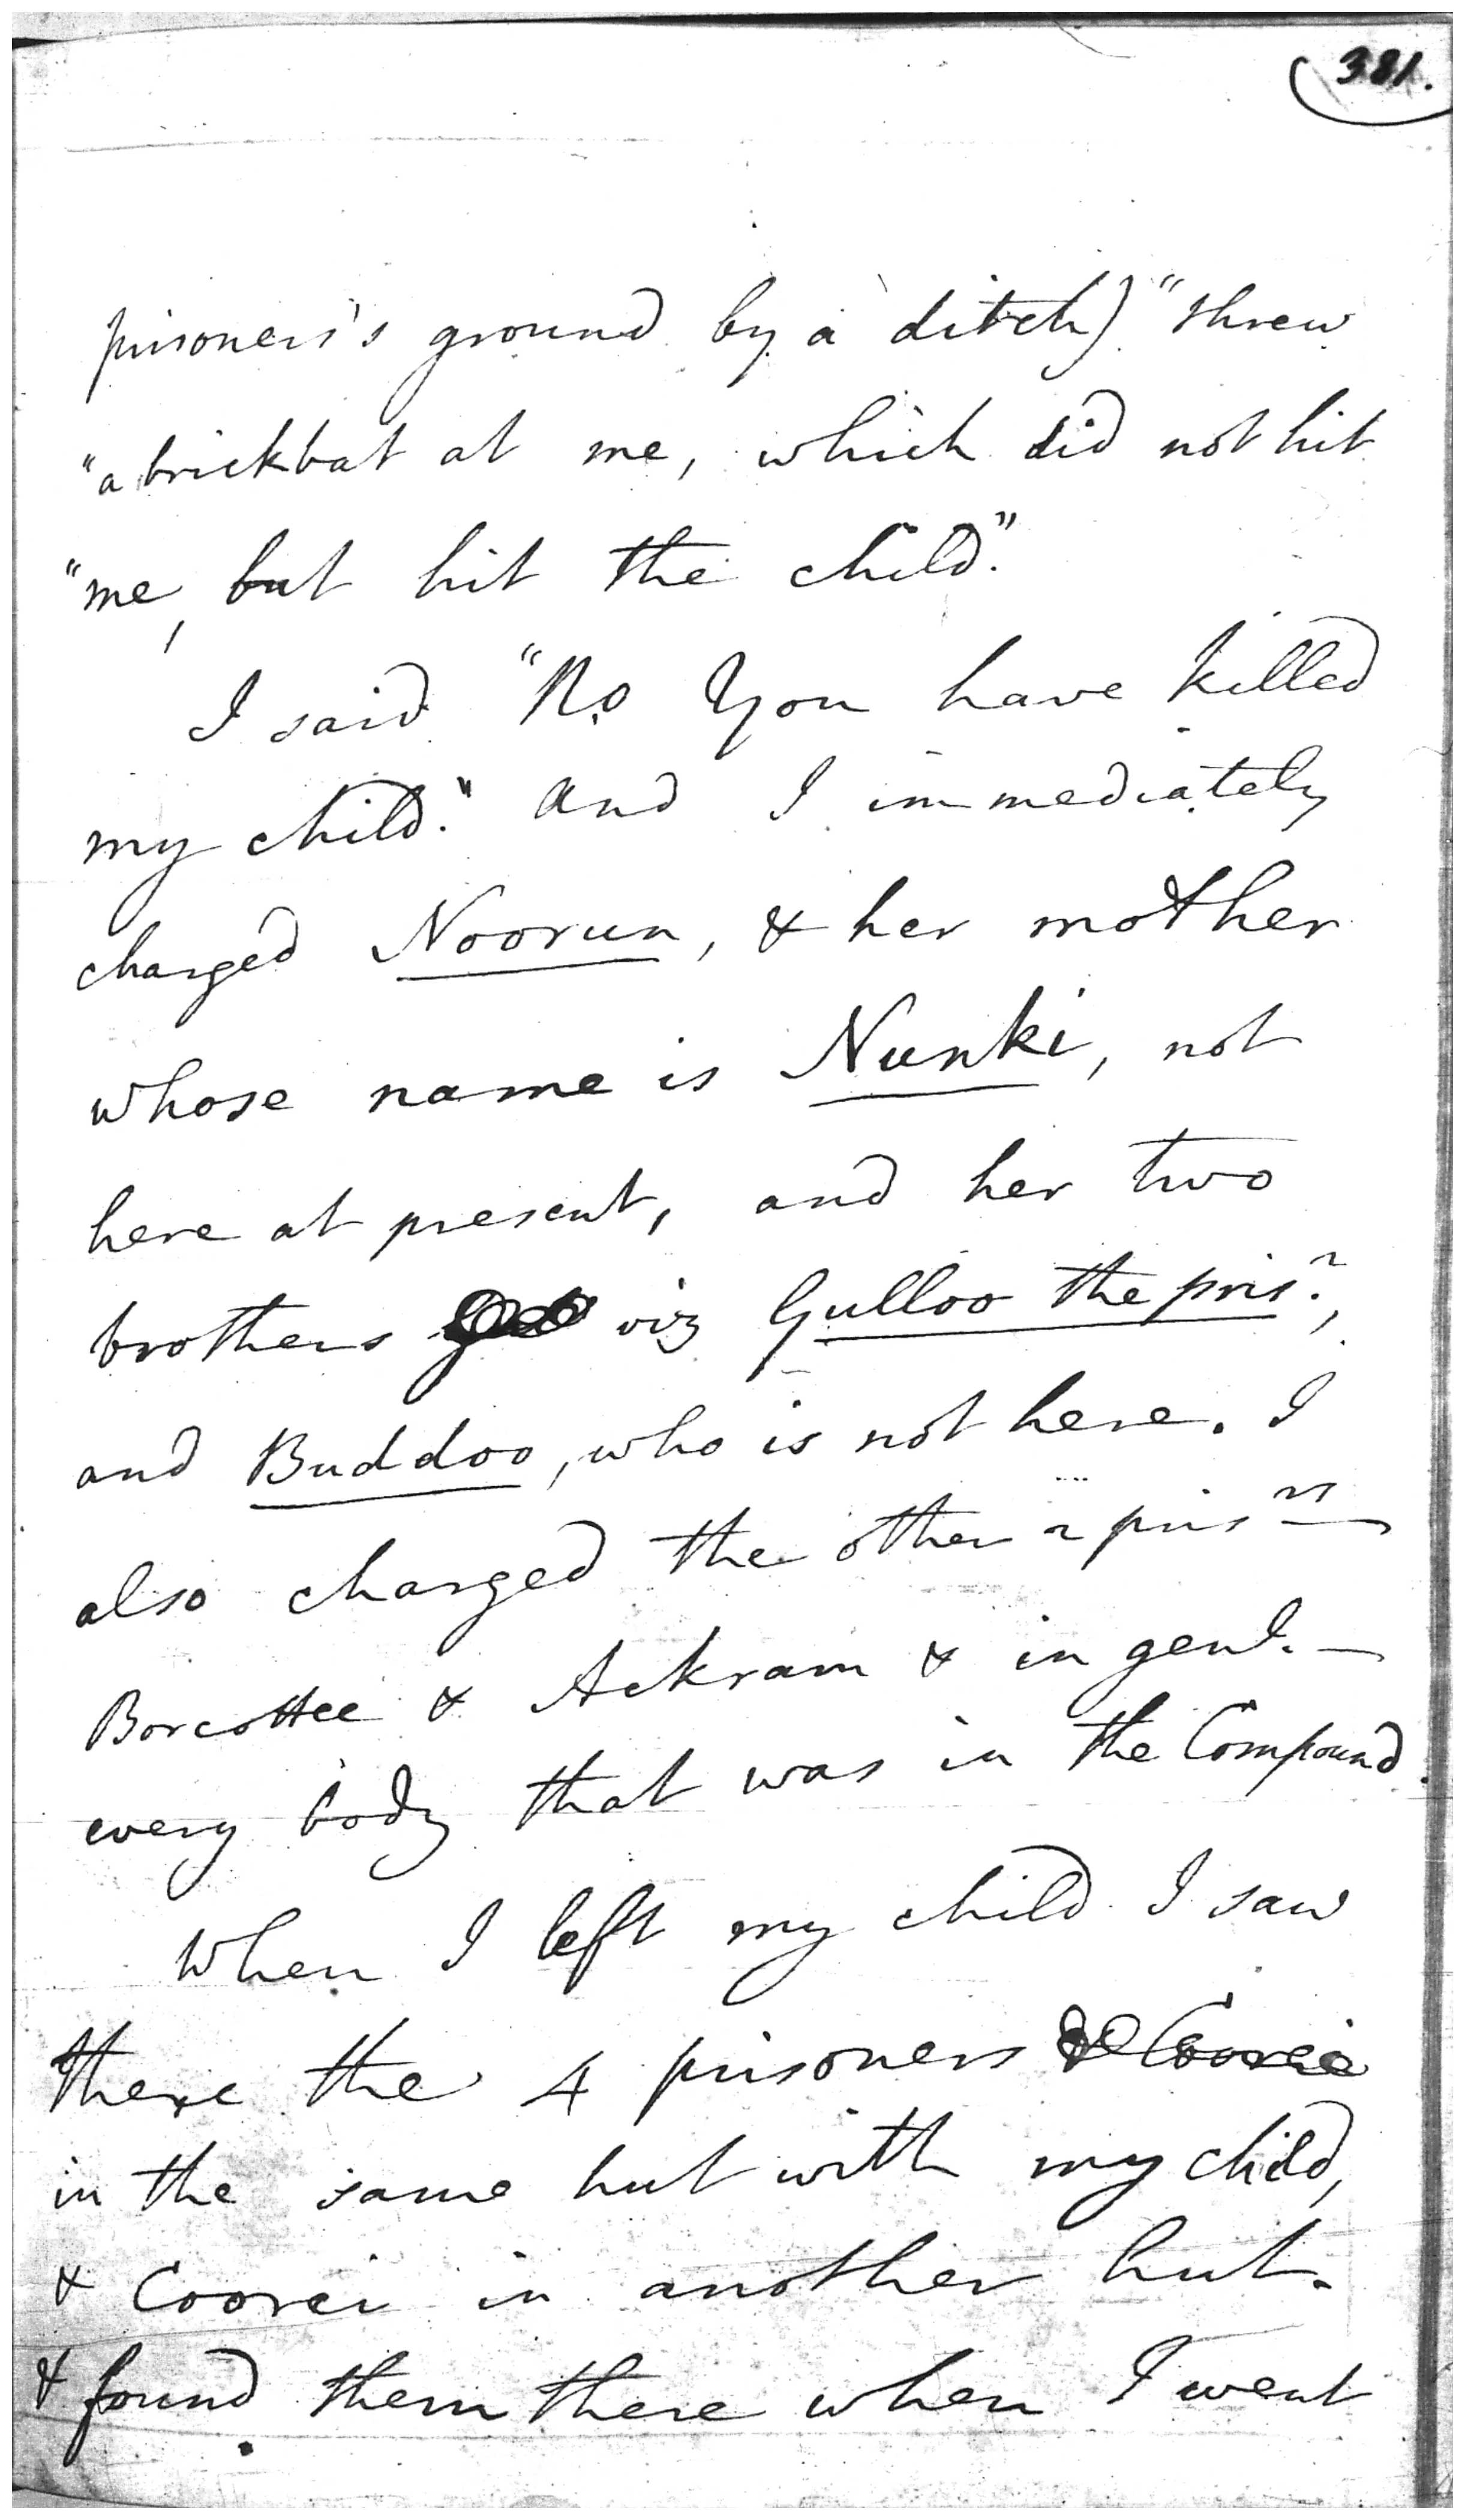 381.
prisoners's ground by a ditch) "threw
"a brickbat at me, which did not hit
"me, but hit the child."
I said "No You have killed
my child." And I immediately
charged Noorun, & her mother
whose name is Nunki, not
here at present, and her two
brothers viz Gulloo the prisr,
and Buddoo, who is not here. I
also charged the other 2 prisrs
Borcottee & Ackram & in genl. —
every body that was in the Compound.
When I left my child I saw
there the 4 prisoners & Coorei
in the same hut with my child,
& Coorei in another hut.
& found them there when I went